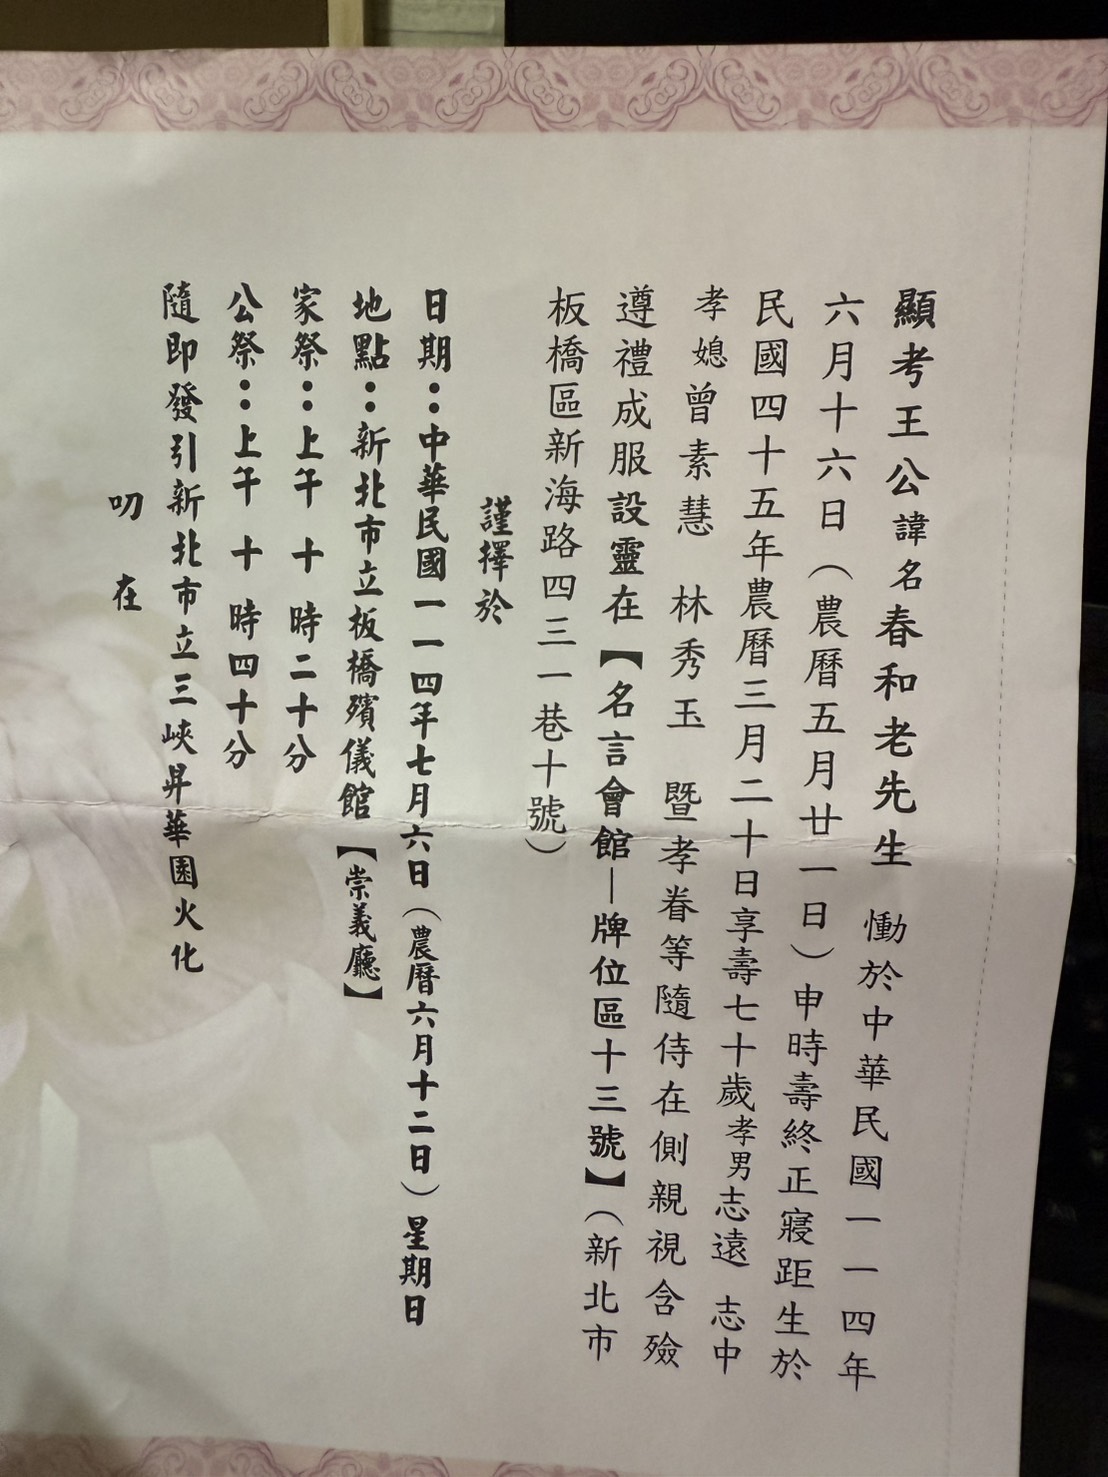 顯考王公諱名春和老先生 慟於中華民國一一四年
六月十六日（農曆五月廿一日）申時壽終正寢距生於
民國四十五年農曆三月二十日享壽七十歲孝男志遠 志中
孝媳曾素慧 林秀玉 暨孝眷等隨侍在側親視含殮
遵禮成服設靈在【名言會館—牌位區十三號】（新北市
板橋區新海路四三一巷十號）
謹擇於
日期：中華民國一一四年七月六日（農曆六月十二日）星期日
地點：新北市立板橋殯儀館【崇義廳】
家祭：上午 十 時二十分
公祭：上午 十 時四十分
隨即發引新北市立三峽昇華園火化
叨 在